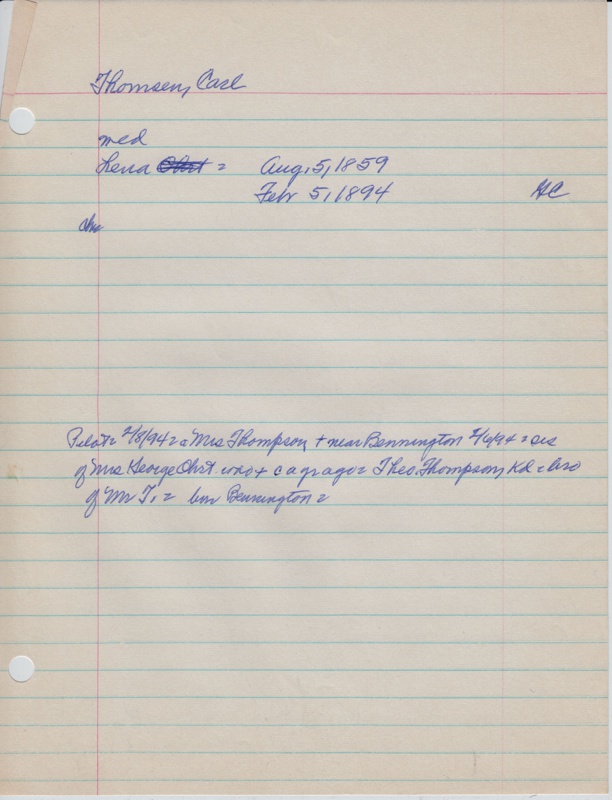 Thomsen, Carl
med
Lena Ohrt = Aug. 5, 1859
Feb 5, 1894 HC
chn
Pilot = 2/8/94 = a Mrs Thompson, + near Bennington 2/6/94 = sis
of Mrs George Ohrt who + c a yr ago = Theo. Thompson, Kd = bro
of Mr T. = bur Bennington =